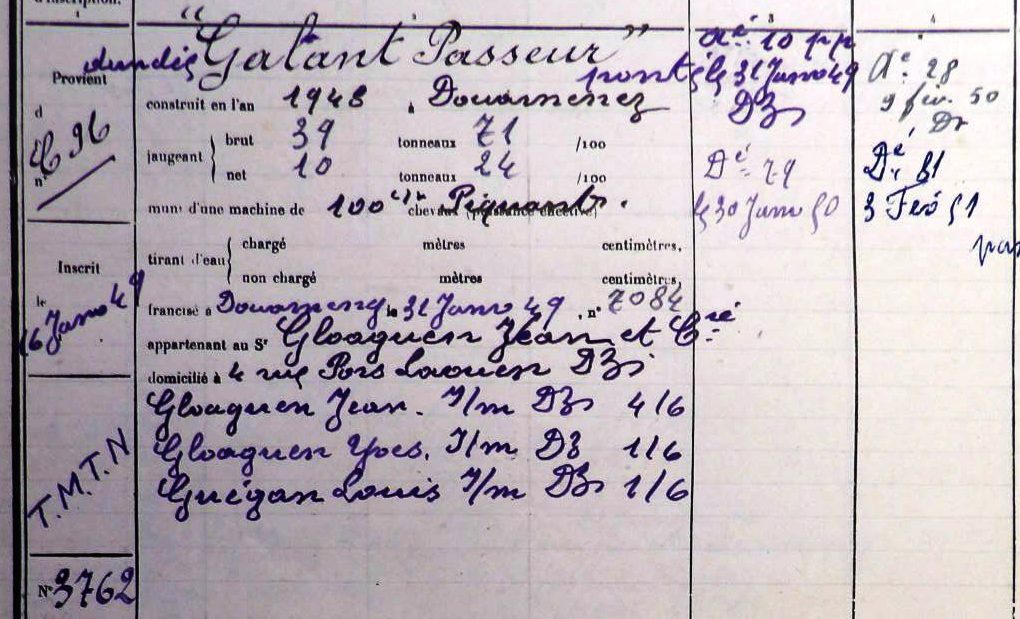 d'inscription.
1
3
4
Provient
d
96
n°
Inscrit
le
16 Janv 49
T.M.T.N
N° 3762
dundée "Galant Passeur"
ponté
construit en l'an 1948 à Douarnenez
jaugeant { brut 39 tonneaux 71 /100
net 10 tonneaux 24 /100
muni d'une machine de 100 chevaux
tirant d'eau { chargé mètres centimètres,
non chargé mètres centimètres,
francisé à Douarnenez le 31 Janv 49, n° 7084
appartenant au Sr Gloaguen Jean et Cie
domicilié à 4 rue Pors Laouen DZ
Gloaguen Jean. I/m DZ 4/6
Gloaguen Yves. I/m DZ 1/6
Guégan Louis I/m DZ 1/6
Aé 10
le 31 Janv 49
DZ
Dé 29
le 30 Janv 50
Aé 28
9 fév. 50
Dz
Dé 81
3 Fév 51